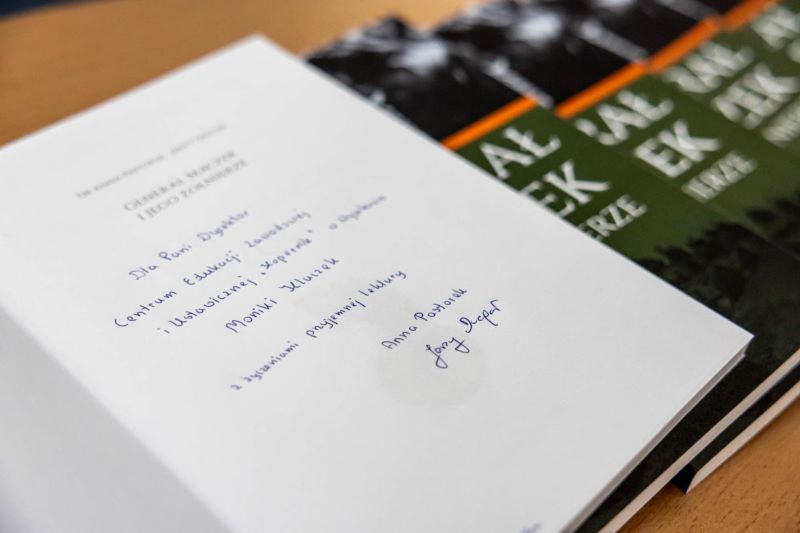 GENERAŁ MACZEK
I JEGO ŻOŁNIERZE
Dla Pani Dyrektor
Centrum Edukacji Zawodowej
i Ustawicznej „Kopernik” w
Moniki Kluczek
z życzeniami przyjemnej lektury
Anna Pastorek
Jerzy
AŁ
EK
ERZE
RAŁ
EK
IERZE
RAŁ
ZEK